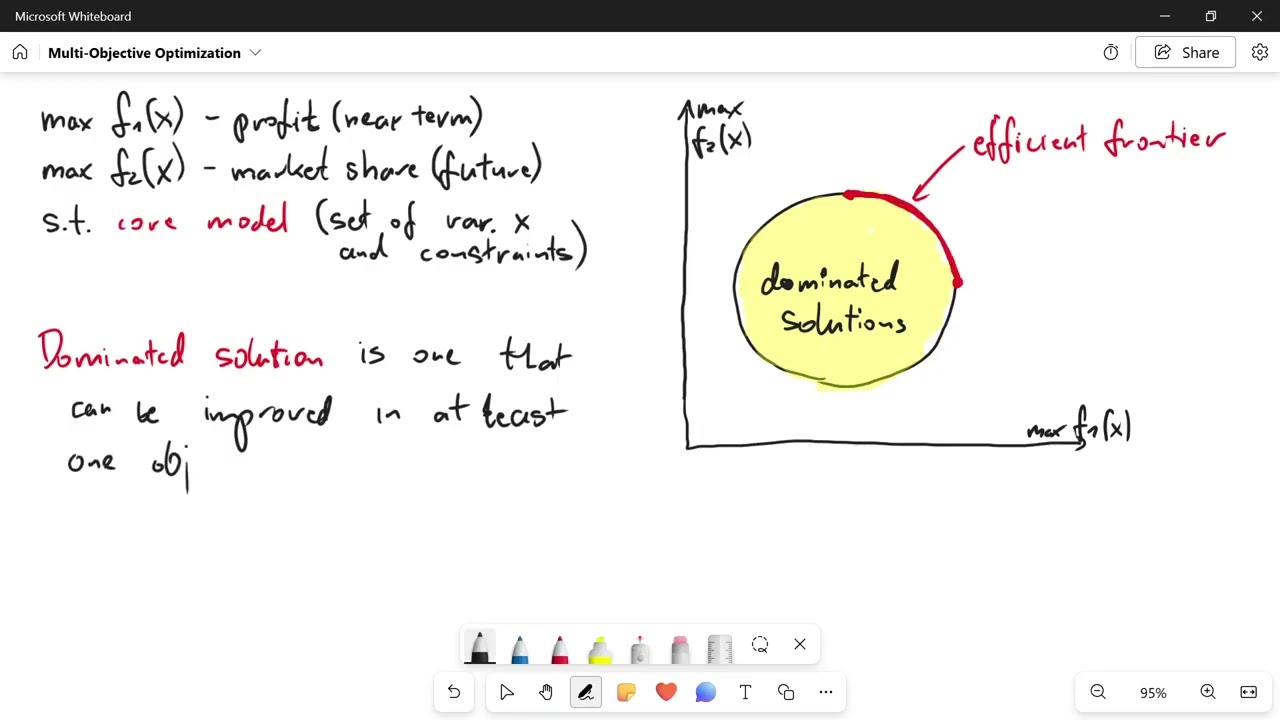 Microsoft Whiteboard
Multi-Objective Optimization
Share
max f₁(x) - profit (near term)
max f₂(x) - market share (future)
s.t. core model (set of var. x
and constraints)
Dominated solution is one that
can be improved in at least
one obj
max
f₂(x)
efficient frontier
dominated
solutions
max f₁(x)
95%